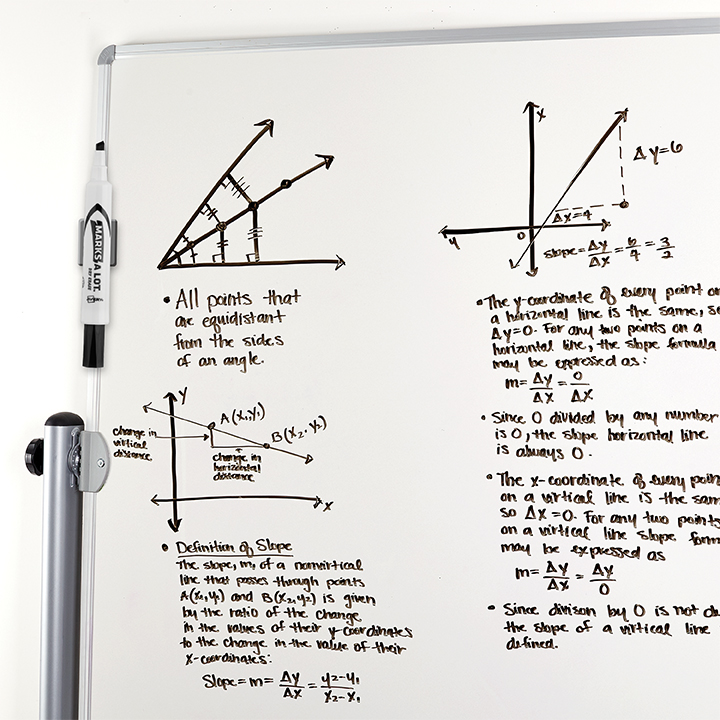 MARKS A LOT.
• All points that
are equidistant
from the sides
of an angle.
Y
A (X₁,Y₁)
B (X₂, Y₂)
change in
virtical
distance
change in
horizontal
distance
X
• Definition of Slope
The slope, m, of a nonvirtical
line that passes through points
A(X₁,Y₁) and B(X₂,Y₂) is given
by the ratio of the change
in the values of their y-coordinates
to the change in the value of their
X-coordinates:
Slope = m = ΔY/ΔX = y₂-y₁/x₂-x₁
X
ΔY=6
ΔX=4
Y
0
slope = ΔY/ΔX = 6/4 = 3/2
• The y-coordinate of every point on
a horizontal line is the same, so
ΔY=0. For any two points on a
horizontal line, the slope formula
may be expressed as:
m = ΔY/ΔX = 0/ΔX
• Since 0 divided by any number
is 0, the slope horizontal line
is always 0.
• The x-coordinate of every point
on a virtical line is the same
so ΔX=0. For any two points
on a virtical line slope form
may be expressed as
m = ΔY/ΔX = ΔY/0
• Since divison by 0 is not de
the slope of a virtical line
defined.